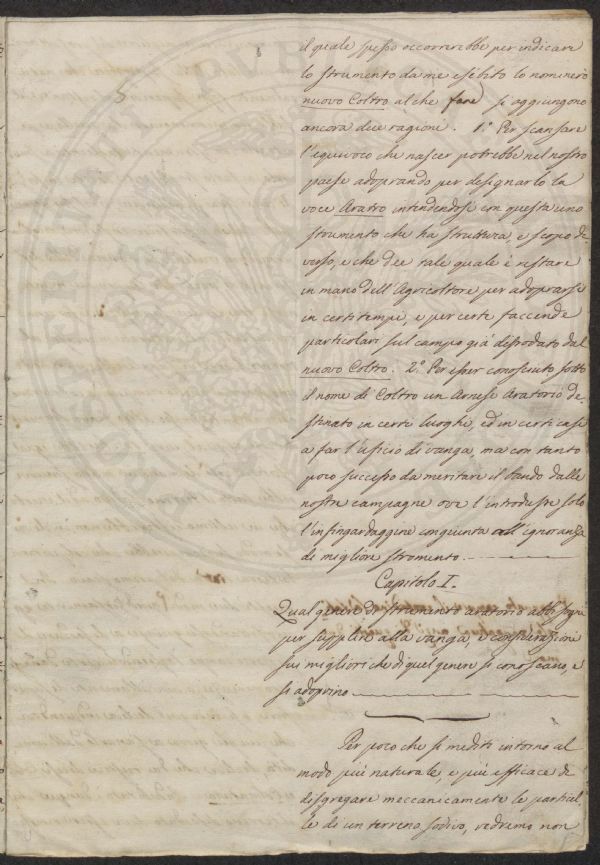 il quale spesso occorrerebbe per indicare
lo strumento da me esebito lo nominerò
nuovo Coltro al che fare si aggiungono
ancora due ragioni. 1.° Per scansare
l'equivoco che nascer potrebbe nel nostro
paese adoprando per designarlo la
voce Aratro intendendosi con questa uno
strumento che ha struttura, e scopo di-
verso, e che dee tale quale è restare
in mano dell'Agricoltore per adoprarsi
in certi tempi, e per certe faccende
particolari sul campo già dissodato dal
nuovo Coltro. 2.° Per esser conosciuto sotto
il nome di Coltro un Arnese Aratorio de-
stinato in certi luoghi, ed in certi casi
a far l'uficio di vanga, ma con tanto
poco successo da meritare il bando dalle
nostre campagne ove l'introdusse solo
l'infingardaggine congiunta all'ignoranza
di migliore stromento.
Capitolo I.
Qual genere di strumento aratorio abbisogni
per supplire alla vanga, e considerazioni
sui migliori che di quel genere si conoscano, e
si adoprino
Per poco che si mediti intorno al
modo più naturale, e più efficace di
disgregare meccanicamente le particel-
le di un terreno sodivo, vedremo non
PROSPERITATI PVBLICAE